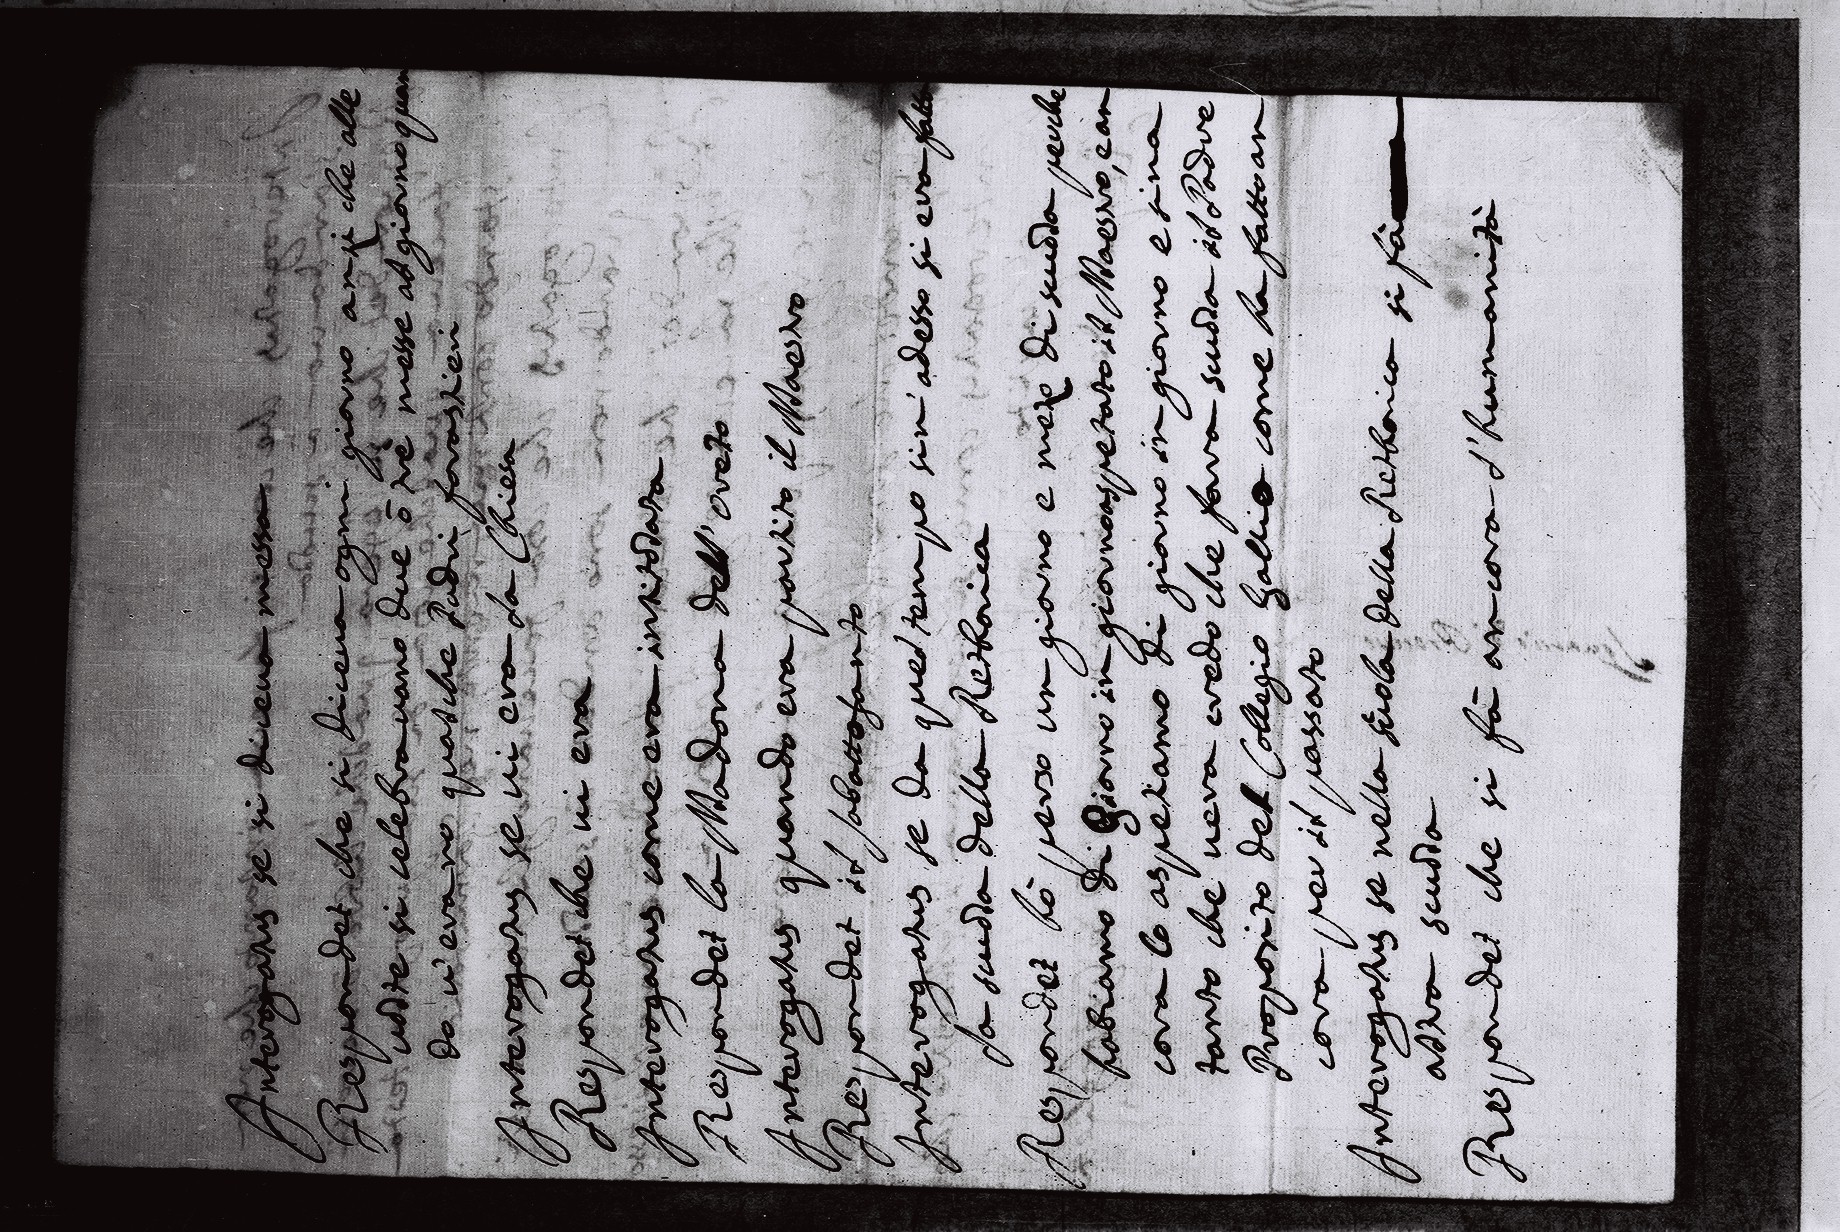 Interogatus se si diceua messa
Respondet che si diceua ogni giorno anzi che alle
uolte si celebrauano due ò trè messe al giorno quan
do u'erano qualche Padri forastieri
Interogatus se ui era la Chiesa
Respondet che ui era
Interogatus come era intitolata
Respondet la Madona dell'oreto
Interogatus quando era partito il Maestro
Respondet il sabatto santo
Interogatus se da quel tempo sin'adesso si era fatto
la scuola della Rethorica
Respondet hò perso un giorno e mezo di scuola perche
habiamo di Giorno in giorno aspetato il Maestro, e an
cora lo aspetiamo di giorno in giorno e sina
tanto che uera credo che farà scuola il Padre
Proposito del Collegio Gallio come ha fatto an
cora per il passato
Interogatus se nella scola della Rethorica si fà
altra scuola
Respondet che si fà ancora d'humanità